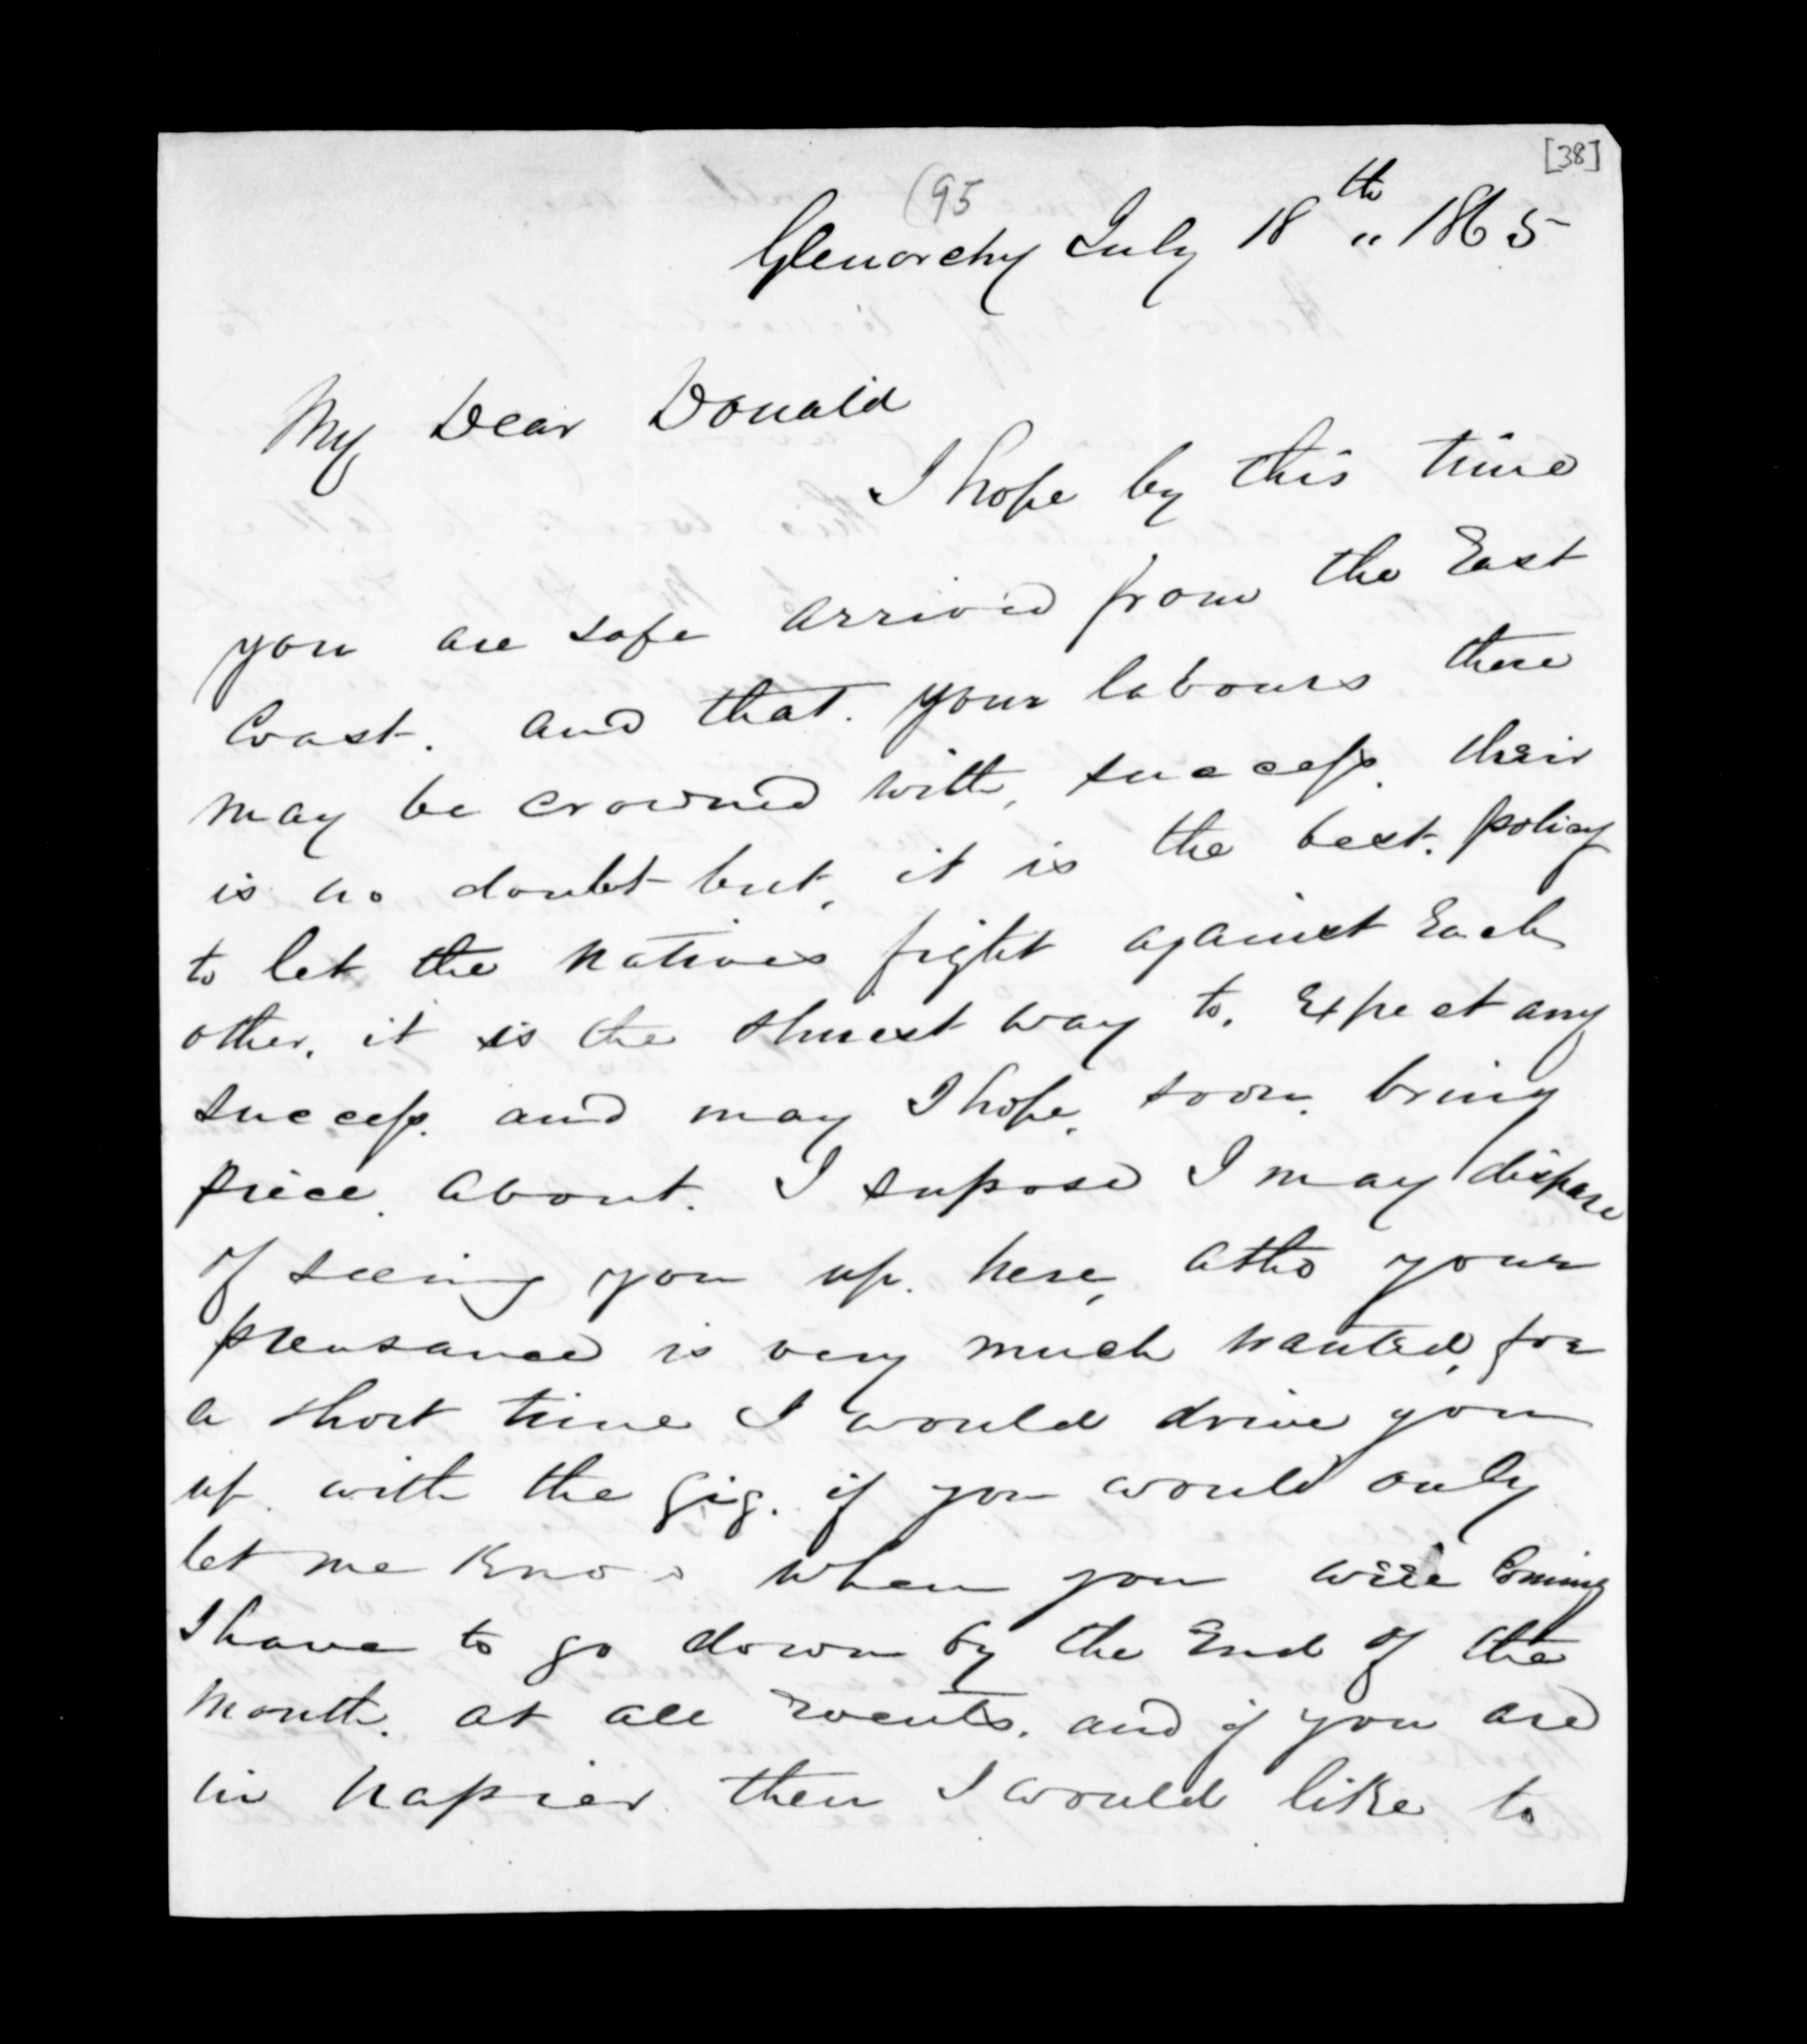 [38]
(95
Glenorchy July 18th „ 1865
My Dear Donald
I hope by this time
you are safe arrived from the East
Coast. and that. your labours there
may be crowned with, success. their
is no doubt but, it is the best. policy
to let the natives fight against Each
other. it is the shurest way to. Expect any
success. and may I hope. soon. bring
piece. about. I supose I may dispare
of seeing you up. here, altho your
preusance is very much wanted, for
a short time I would drive you
up. with the gig. if you would only
let me know when you will Coming
I have to go down by the End of the
Month. at all Events. and if you are
in Napier then I would like to